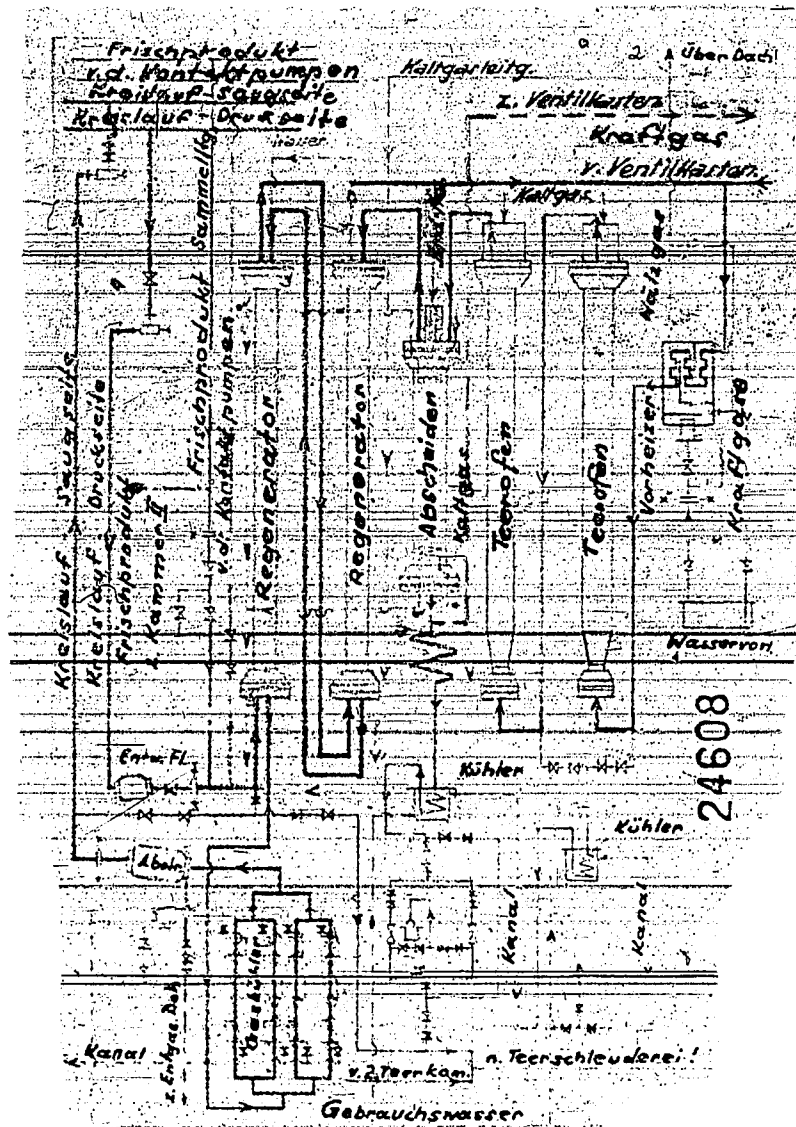 Frischprodukt
v.d. Kontaktpumpen
Kreislauf-Saugseite
Kreislauf-Druckseite
Kaltgasleitg.
2
über Dach
z. Ventilkasten
Kraftgas
v. Ventilkasten
Kaltgas
Kreislauf Saugseite
Kreislauf Druckseite
Frischprodukt
z. Kammer II
Frischprodukt Sammelltg.
v.d. Kontaktpumpen
Regenerator
Regenerator
Abscheiden
Kaltgas
Teerofen
Teerofen
Wälzgas
Vorheizer
Kraftgas
Wasservor.
24608
Entw. Fl.
Kühler
Kühler
Absch.
Gaskühler
Kanal
Kanal
Kanal
z. Entgas. Beh.
v. 2. Teerkam.
n. Teerschleuderei!
Gebrauchswasser